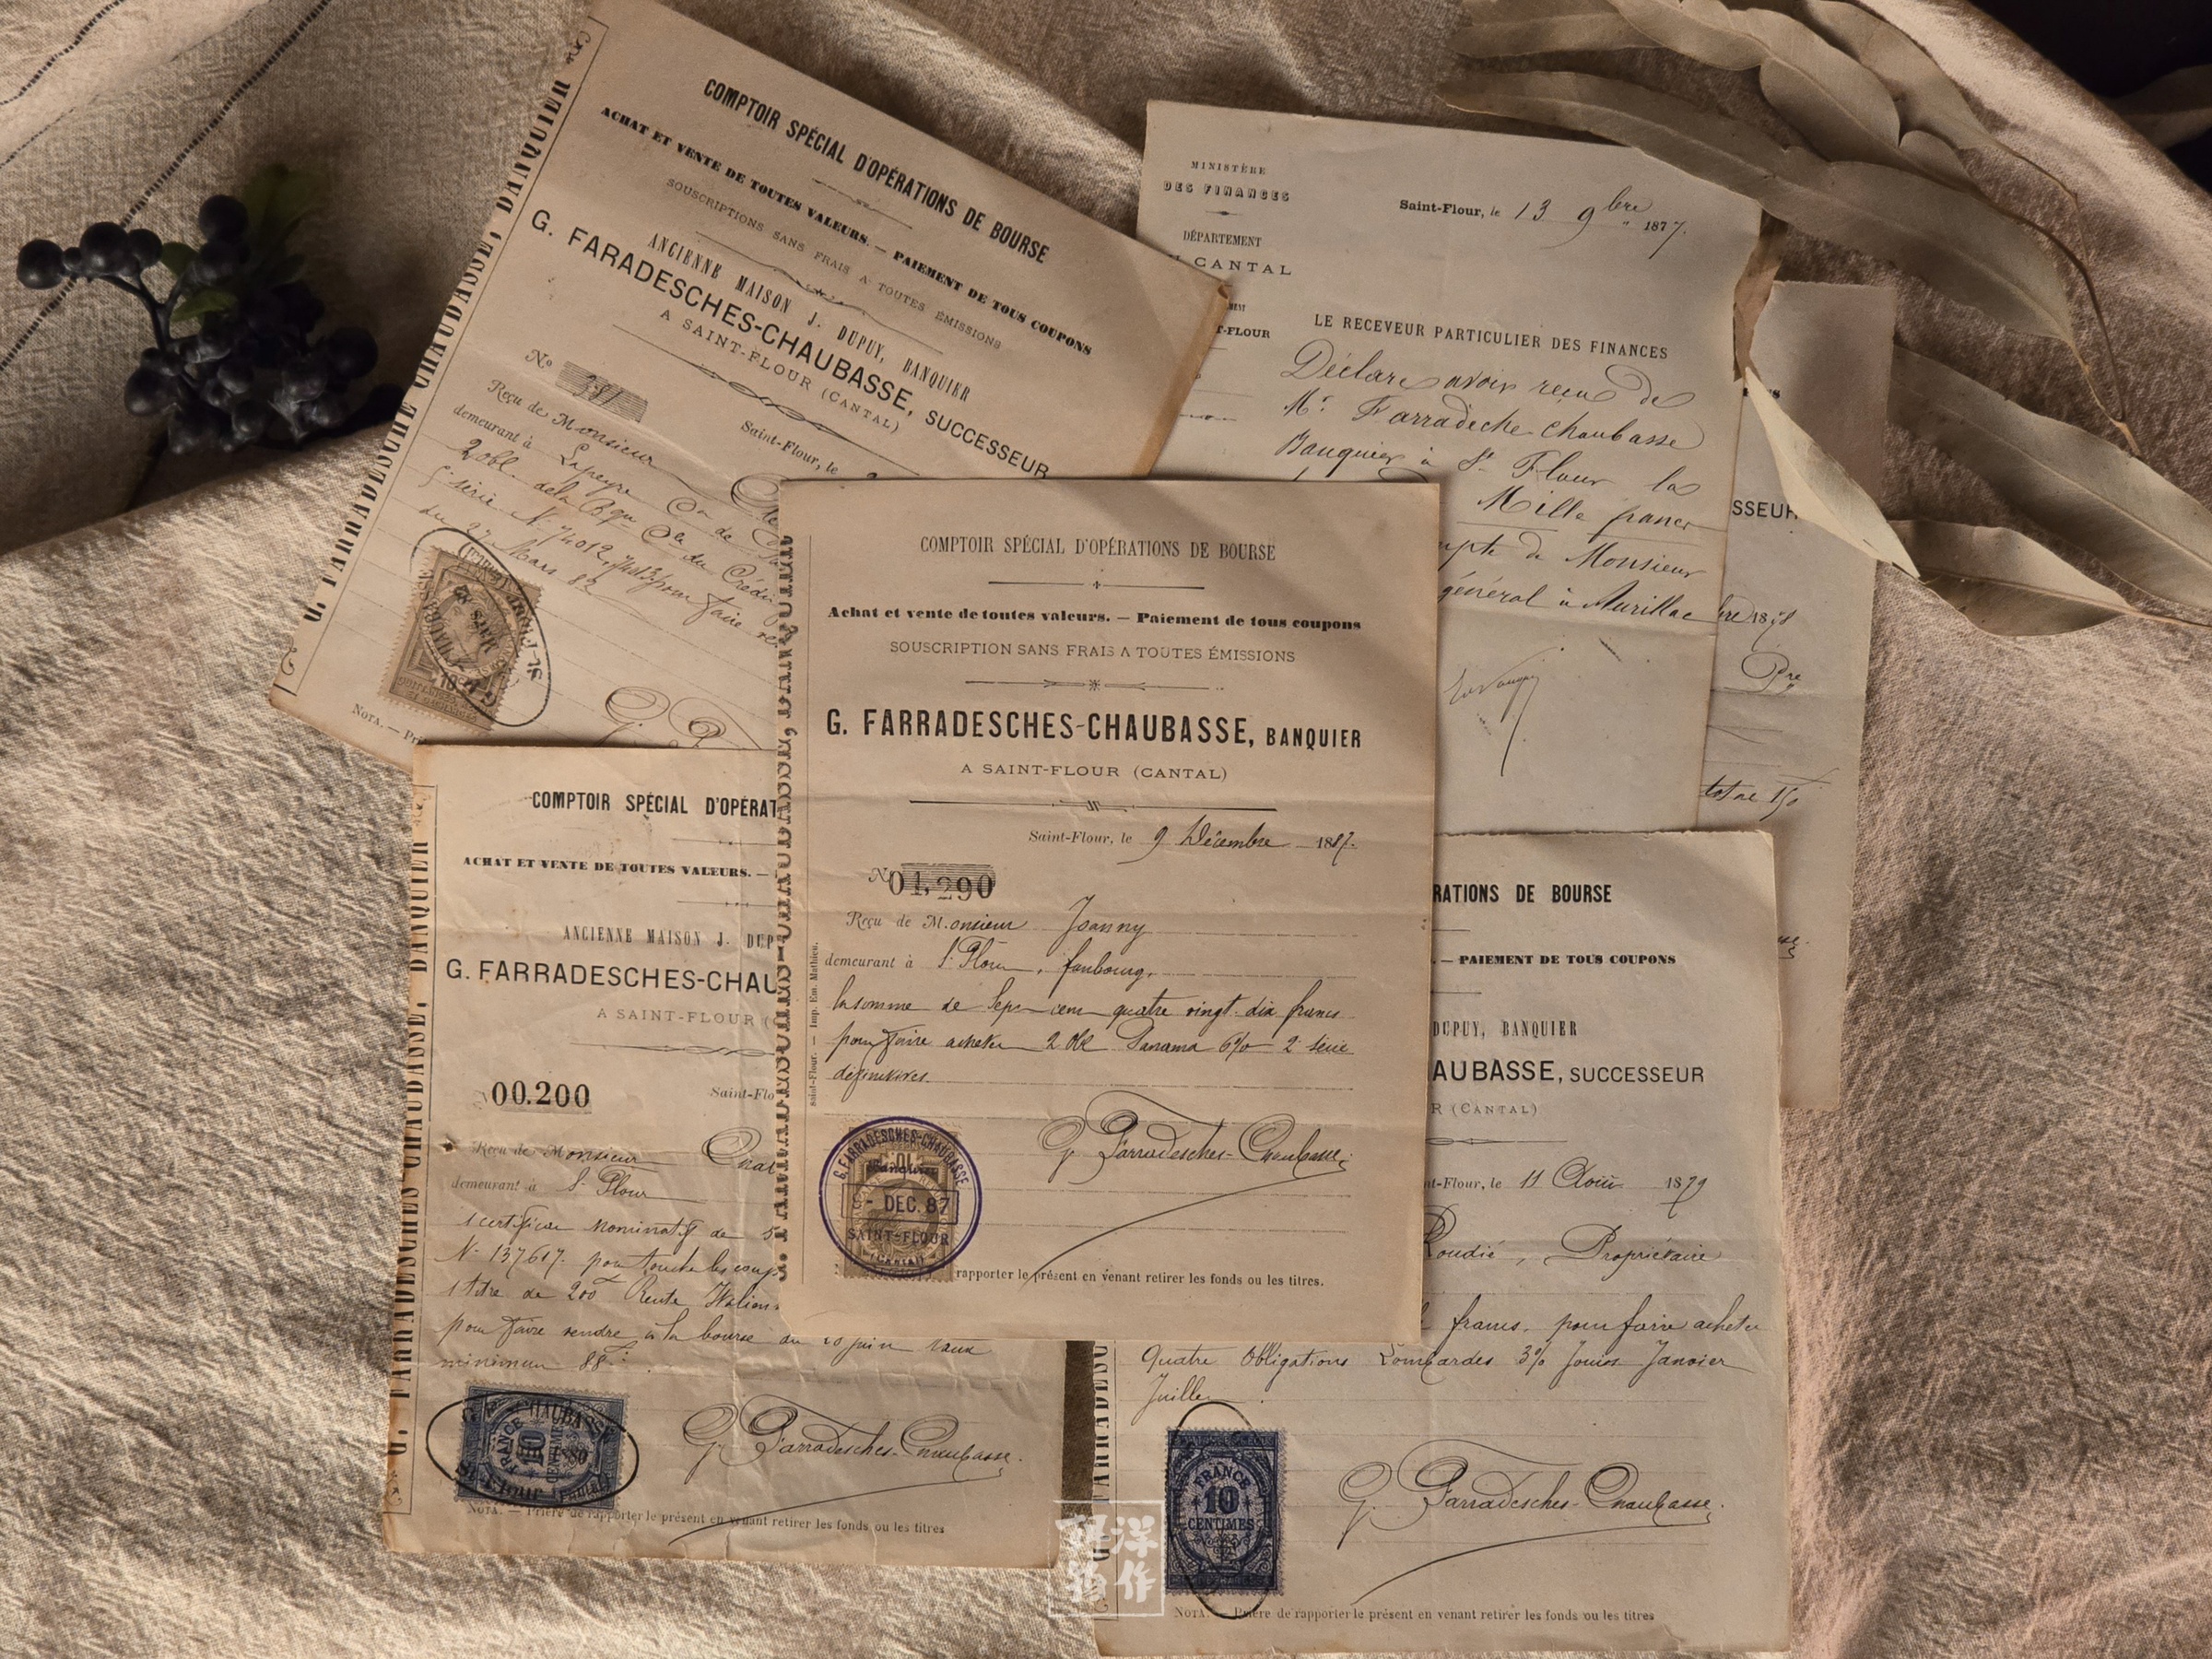 COMPTOIR SPÉCIAL D'OPÉRATIONS DE BOURSE
ACHAT ET VENTE DE TOUTES VALEURS. — PAIEMENT DE TOUS COUPONS
SOUSCRIPTIONS SANS FRAIS A TOUTES ÉMISSIONS
ANCIENNE MAISON J. DUPUY, BANQUIER
G. FARADESCHES-CHAUBASSE, SUCCESSEUR
A SAINT-FLOUR (CANTAL)
No 381
Saint-Flour, le
Reçu de Monsieur
demeurant à Lapeyre Con de
2 obl de la Bque Cle du Crédit
5e série No 74012, 74013 pour faire
du 27 Mars 82
NOTA. — Pri
MINISTÈRE
DES FINANCES
DÉPARTEMENT
CANTAL
T-FLOUR
Saint-Flour, le 13 9bre 1877.
LE RECEVEUR PARTICULIER DES FINANCES
Déclare avoir reçu de
Mr Farradèche Chaubasse
Banquier à St Flour la
Mille francs
mpte de Monsieur
général à Aurillac
SSEUR
bre 1878
Pre
total 150
COMPTOIR SPÉCIAL D'OPÉRATIONS DE BOURSE
Achat et vente de toutes valeurs. — Paiement de tous coupons
SOUSCRIPTION SANS FRAIS A TOUTES ÉMISSIONS
G. FARRADESCHES-CHAUBASSE, BANQUIER
A SAINT-FLOUR (CANTAL)
Saint-Flour, le 9 Décembre 1887.
No 01,290
Reçu de Monsieur Joanny
demeurant à St Flour, faubourg.
la somme de Sept cent quatre vingt-dix francs
pour faire acheter 2 Obl Panama 6% 2e série
définitives.
G. Farradesches-Chaubasse
G. FARRADESCHES-CHAUBASSE
Banquier
9- DEC. 87
SAINT-FLOUR
(CANTAL)
rapporter le présent en venant retirer les fonds ou les titres.
Saint-Flour. — Imp. Em. Mathieu.
COMPTOIR SPÉCIAL D'OPÉRAT
ACHAT ET VENTE DE TOUTES VALEURS. —
ANCIENNE MAISON J. DUP
G. FARRADESCHES-CHAU
A SAINT-FLOUR (
00.200
Saint-Flo
Reçu de Monsieur
demeurant à St Flour
1 certificat Nominatif de 5
No 137617. pour toucher les coup
1 titre de 200f Rente Italien
pour faire vendre à la bourse du 20 juin taux
minimum 88f
G. Farradesches-Chaubasse.
FRANCE
10
CENTIMES
NOTA. — Prière de rapporter le présent en venant retirer les fonds ou les titres
G. FARRADESCHES CHAUDASSE, BANQUIER
RATIONS DE BOURSE
. — PAIEMENT DE TOUS COUPONS
DUPUY, BANQUIER
AUBASSE, SUCCESSEUR
R (CANTAL)
nt-Flour, le 11 Août 1879
Roudié, Propriétaire
francs. pour faire acheter
Quatre Obligations Lombardes 3% Jouiss Janvier
Juillet
G. Farradesches-Chaubasse.
FRANCE
10
CENTIMES
NOTA. — Prière de rapporter le présent en venant retirer les fonds ou les titres
洋作